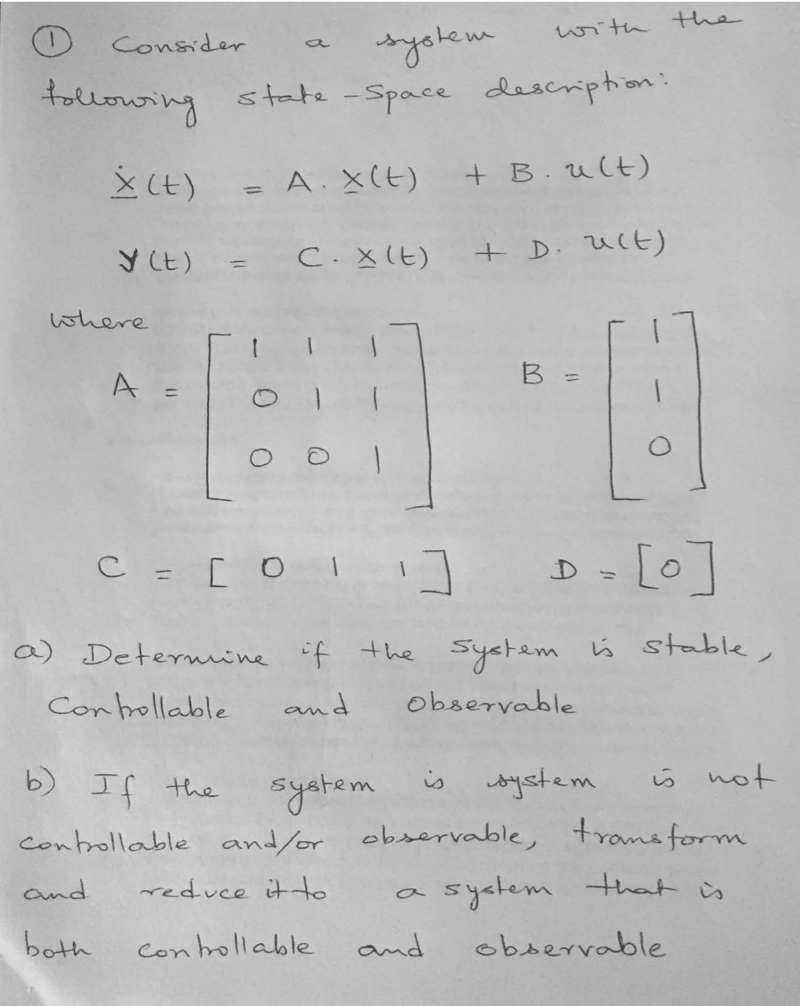 ① Consider a system with the
following state-space description:
ẋ(t) = A. x(t) + B. u(t)
y(t) = C. x(t) + D. u(t)
where
A = [ 1 1 1   B = [ 1
0 1 1   1
0 0 1 ]   0 ]
C = [ 0 1 1 ]   D = [0]
a) Determine if the system is stable,
Controllable and Observable
b) If the system is system is not
controllable and/or observable, transform
and reduce it to a system that is
both controllable and observable